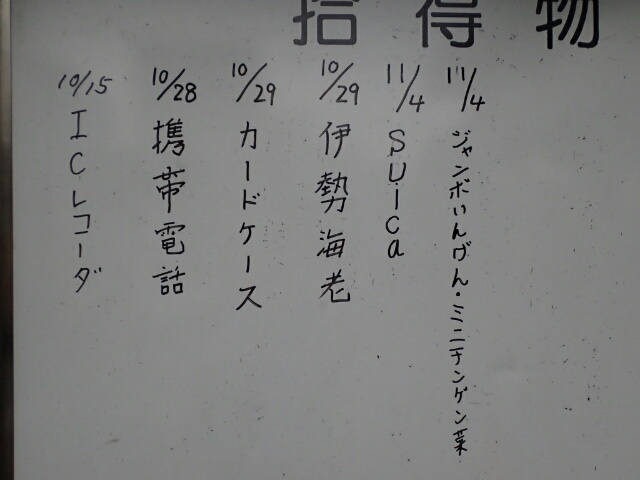 拾得物
11/4 ジャンボいんげん・ミニチンゲン菜
11/4 SUica
10/29 伊勢海老
10/29 カードケース
10/28 携帯電話
10/15 ICレコーダ